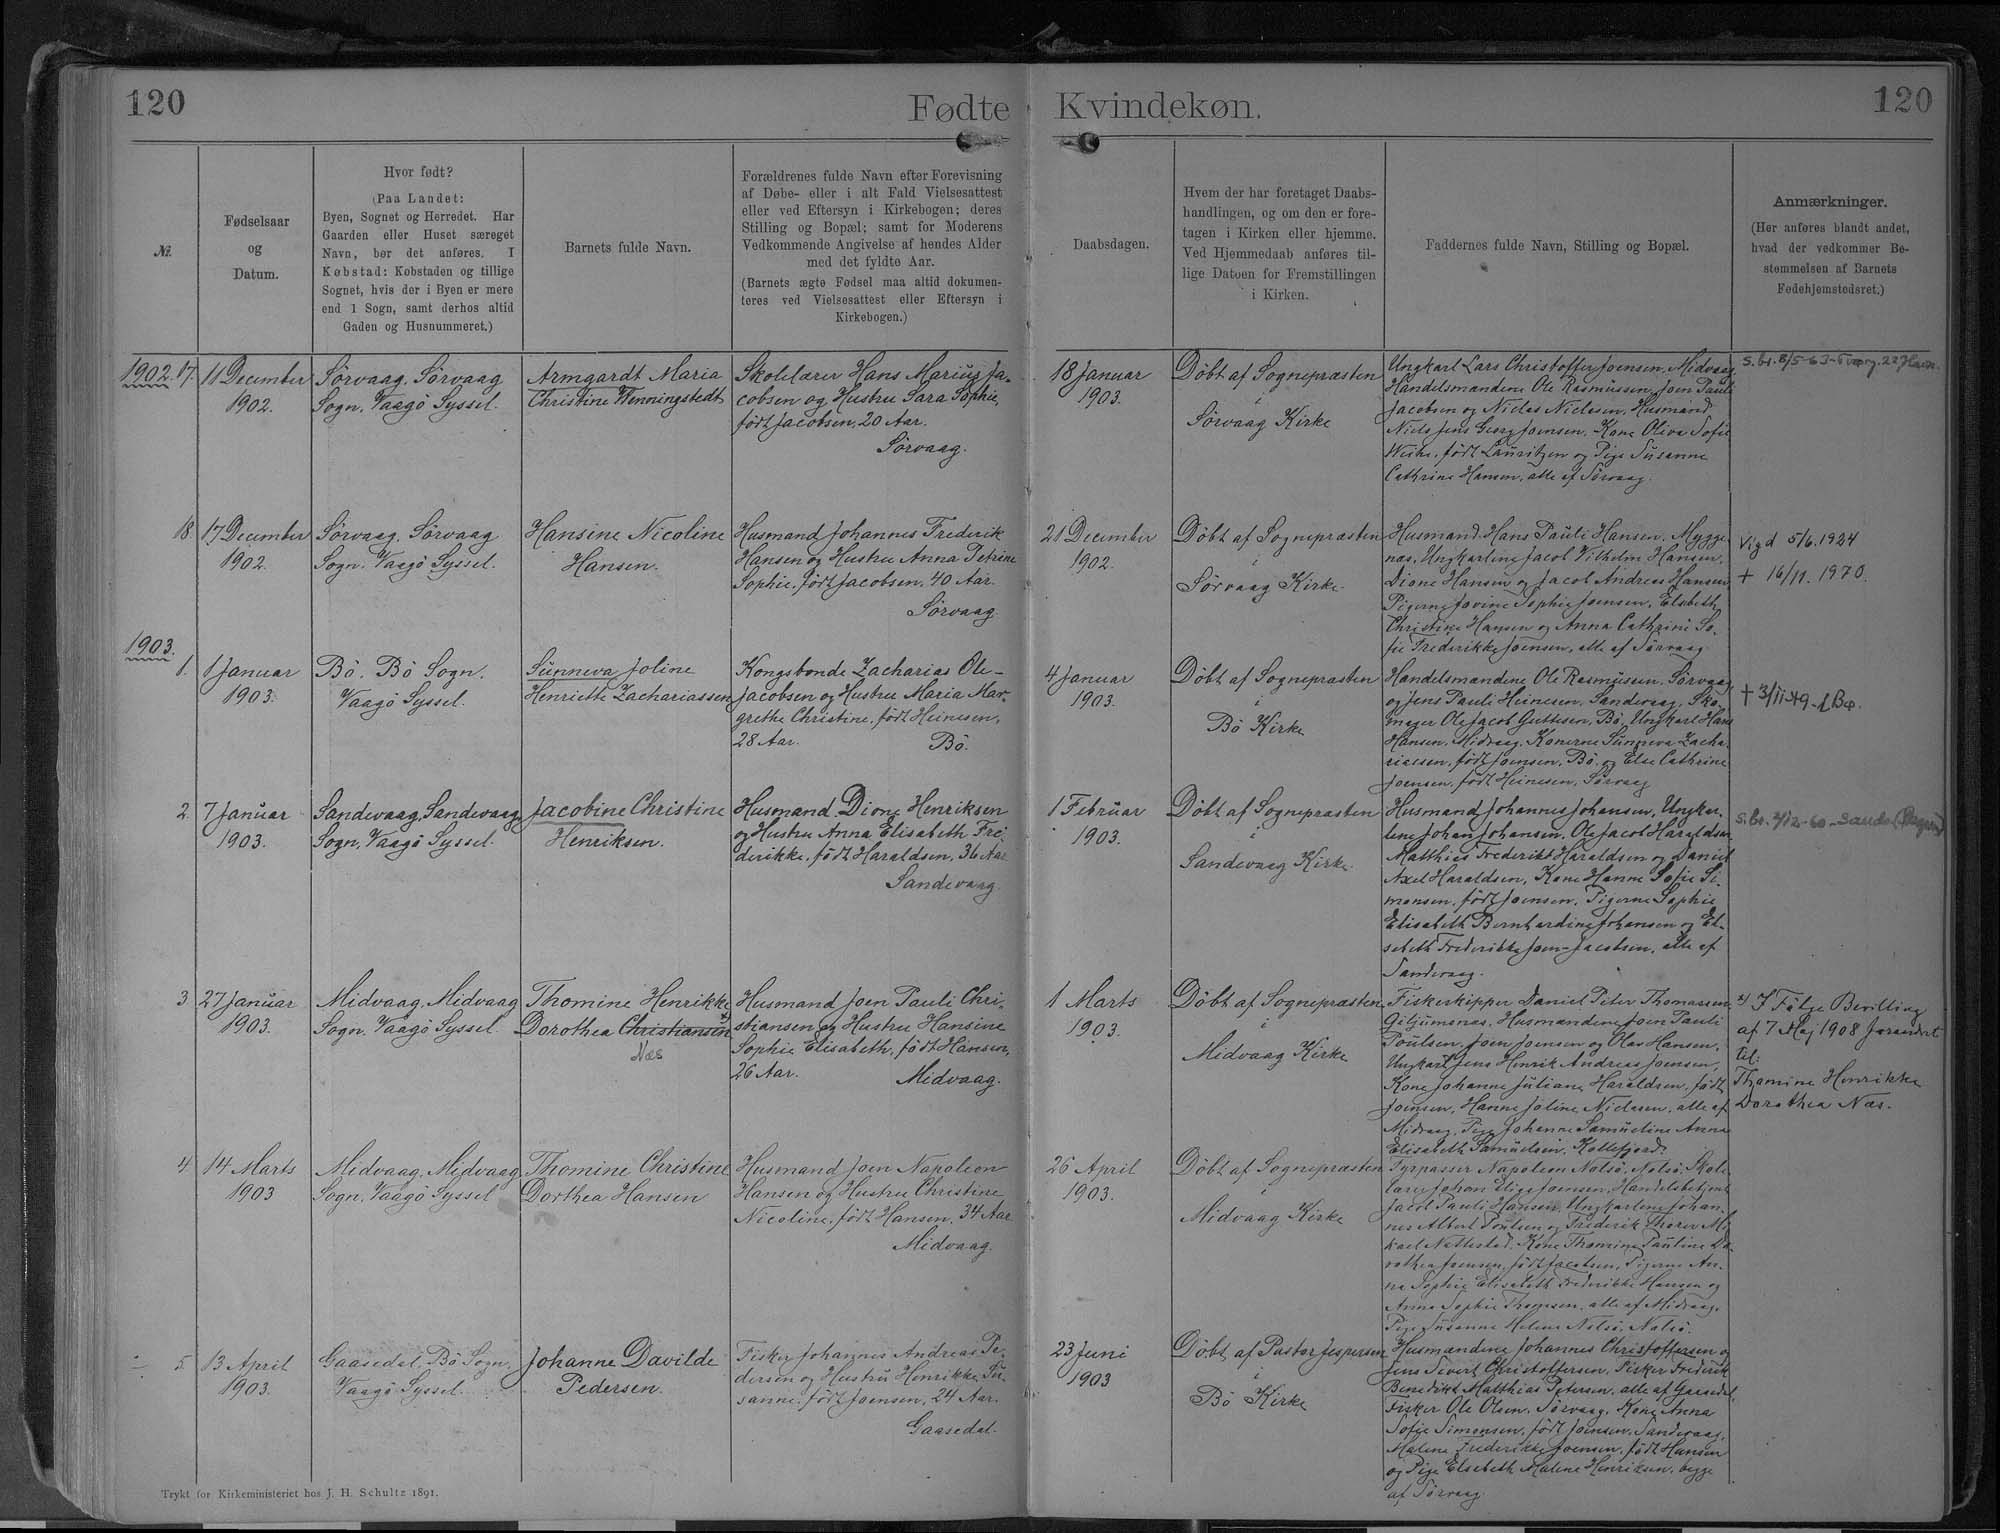 120
Fødte
Kvindekøn.
120
№.
Fødselsaar
og
Datum.
Hvor født?
(Paa Landet:
Byen, Sognet og Herredet. Har
Gaarden eller Huset særeget
Navn, bør det anføres. I
Købstad: Købstaden og tillige
Sognet, hvis der i Byen er mere
end 1 Sogn, samt derhos altid
Gaden og Husnummeret.)
Barnets fulde Navn.
Forældrenes fulde Navn efter Forevisning
af Døbe- eller i alt Fald Vielsesattest
eller ved Eftersyn i Kirkebogen; deres
Stilling og Bopæl; samt for Moderens
Vedkommende Angivelse af hendes Alder
med det fyldte Aar.
(Barnets ægte Fødsel maa altid dokumen-
teres ved Vielsesattest eller Eftersyn i
Kirkebogen.)
Daabsdagen.
Hvem der har foretaget Daabs-
handlingen, og om den er fore-
tagen i Kirken eller hjemme.
Ved Hjemmedaab anføres til-
lige Datoen for Fremstillingen
i Kirken.
Faddernes fulde Navn, Stilling og Bopæl.
Anmærkninger.
(Her anføres blandt andet,
hvad der vedkommer Be-
stemmelsen af Barnets
Fødehjemstedsret.)
1902. 17.
11 December
1902.
Sörvaag, Sörvaag
Sogn, Vaagö Syssel.
Armgardt Maria
Christine Wenningstedt
Skolelærer Hans Marius Ja-
cobsen og Hustru Sara Sophie,
født Jacobsen, 20 Aar.
Sörvaag.
18 Januar
1903.
Döbt af Sognepræsten
i
Sörvaag Kirke
Ungkarl Lars Christoffer Joensen, Midvaag
Handelsmændene Ole Rasmussen, Joen Pauli
Jacobsen og Niclas Niclasen, Husmand
Niels Jens Georg Joensen, Kone Oliva Sofie
Weihe, født Lauritzen og Pige Susanne
Cathrine Hansen, alle af Sörvaag.
S.br. 8/5-63
18.
17 December
1902.
Sörvaag, Sörvaag
Sogn, Vaagö Syssel.
Hansine Nicoline
Hansen.
Husmand Johannes Frederik
Hansen og Hustru Anna Petrine
Sophie, født Jacobsen, 40 Aar.
Sörvaag.
21 December
1902.
Döbt af Sognepræsten
i
Sörvaag Kirke.
Husmand Hans Pauli Hansen, Mygge-
næs, Ungkarlene Jacob Vilhelm Hansen,
Dione Hansen og Jacob Andreas Hansen,
Pigerne Jovine Sophie Joensen, Elsebeth
Christine Hansen og Anna Cathrine So-
fie Frederikke Joensen, alle af Sörvaag.
Vigd 5/6. 1924
+ 16/11. 1970.
1903.
1.
1 Januar
1903.
Bö. Bö Sogn.
Vaagö Syssel.
Sunneva Joline
Henriette Zachariassen
Kongsbonde Zacharias Ole-
Jacobsen og Hustru Maria Mar-
grethe Christine, født Heinesen,
28 Aar.
Bö.
4 Januar
1903.
Döbt af Sognepræsten
i
Bö Kirke
Handelsmændene Ole Rasmussen, Sörvaag
og Jens Pauli Heinesen, Sandevaag, Sko-
mager Ole Jacob Guttesen, Bö, Ungkarl Hans
Hansen, Midvaag, Konerne Sunneva Zacha-
riassen, født Joensen, Bö, og Else Cathrine
Joensen, født Heinesen, Sörvaag
+ 3/11 49
2.
7 Januar
1903.
Sandevaag, Sandevaag
Sogn, Vaagö Syssel.
Jacobine Christine
Henriksen.
Husmand Dione Henriksen
og Hustru Anna Elisabeth Fre-
derikke, født Haraldsen, 36 Aar
Sandevaag.
1 Februar
1903.
Döbt af Sognepræsten
i
Sandevaag Kirke.
Husmand Johannes Johansen, Ungkar-
lene Johan Johansen, Ole Jacob Haraldsen
Matthias Frederikt Haraldsen og Daniel
Axel Haraldsen, Kone Hanne Sofie Si-
monsen, født Joensen, Pigerne Sophie
Elisabeth Bernhardine Johansen og El-
sebeth Frederikke Joen-Jacobsen, alle af
Sandevaag.
S.br. 2/12-60
3
27 Januar
1903.
Midvaag, Midvaag
Sogn, Vaagö Syssel.
Thomine Henrikke
Dorothea Christiansen x)
Næs
Husmand Joen Pauli Chri-
stiansen og Hustru Hansine
Sophie Elisabeth, født Hansen,
26 Aar.
Midvaag.
1 Marts
1903.
Döbt af Sognepræsten
i
Midvaag Kirke
Fiskerskipper Daniel Peter Thomassen
Giljumsnæs, Husmændene Joen Pauli
Poulsen, Joen Joensen og Olas Hansen,
Ungkarl Jens Henrik Andreas Joensen,
Kone Johanne Juliane Haraldsen, født
Joensen, Hanne Joline Niclasen, alle af
Midvaag, Pige Johanne Samueline Anna
Elisabeth Samuelsen, Kollefjord.
x) I Følge Bevilling
af 7 Maj 1908 forandret
til:
Thomine Henrikke
Dorothea Næs.
4
14 Marts
1903
Midvaag, Midvaag
Sogn, Vaagö Syssel
Thomine Christine
Dorthea Hansen
Husmand Joen Napoleon
Hansen og Hustru Christine
Nicoline, født Hansen, 34 Aar
Midvaag.
26 April
1903.
Döbt af Sognepræsten
i
Midvaag Kirke
Fyrpasser Napoleon Nolsö, Nolsö, Skole-
lærer Johan Elias Joensen, Handelsbetjent
Jacob Pauli Hansen, Ungkarlene Johan-
nes Albert Poulsen og Frederik Thorer Mi-
kael Nattestad, Kone Thomine Pauline Do-
rothea Joensen, født Jacobsen, Pigerne An-
na Sophie Elisabeth Frederikke Hansen og
Anna Sophie Thomsen, alle af Midvaag,
Pige Susanne Helene Nolsö, Nolsö.
5
13 April
1903.
Gaasedal, Bö Sogn,
Vaagö Syssel.
Johanne Davilde
Pedersen.
Fisker Johannes Andreas Pe-
dersen og Hustru Henrikke Su-
sanne, født Joensen, 24 Aar.
Gaasedal.
23 Juni
1903
Döbt af Pastor Jespersen
i
Bö Kirke
Husmændene Johannes Christoffersen og
Jens Sivert Christoffersen, Fisker Frederik
Benedikt Matthias Petersen, alle af Gaasedal,
Fisker Ole Olsen, Sörvaag, Kone Anna
Sofie Simonsen, født Joensen, Sandevaag,
Malene Frederikke Joensen, født Hansen
og Pige Elsebeth Malene Henriksen, begge
af Sörvaag.
Trykt for Kirkeministeriet hos J. H. Schultz 1891.